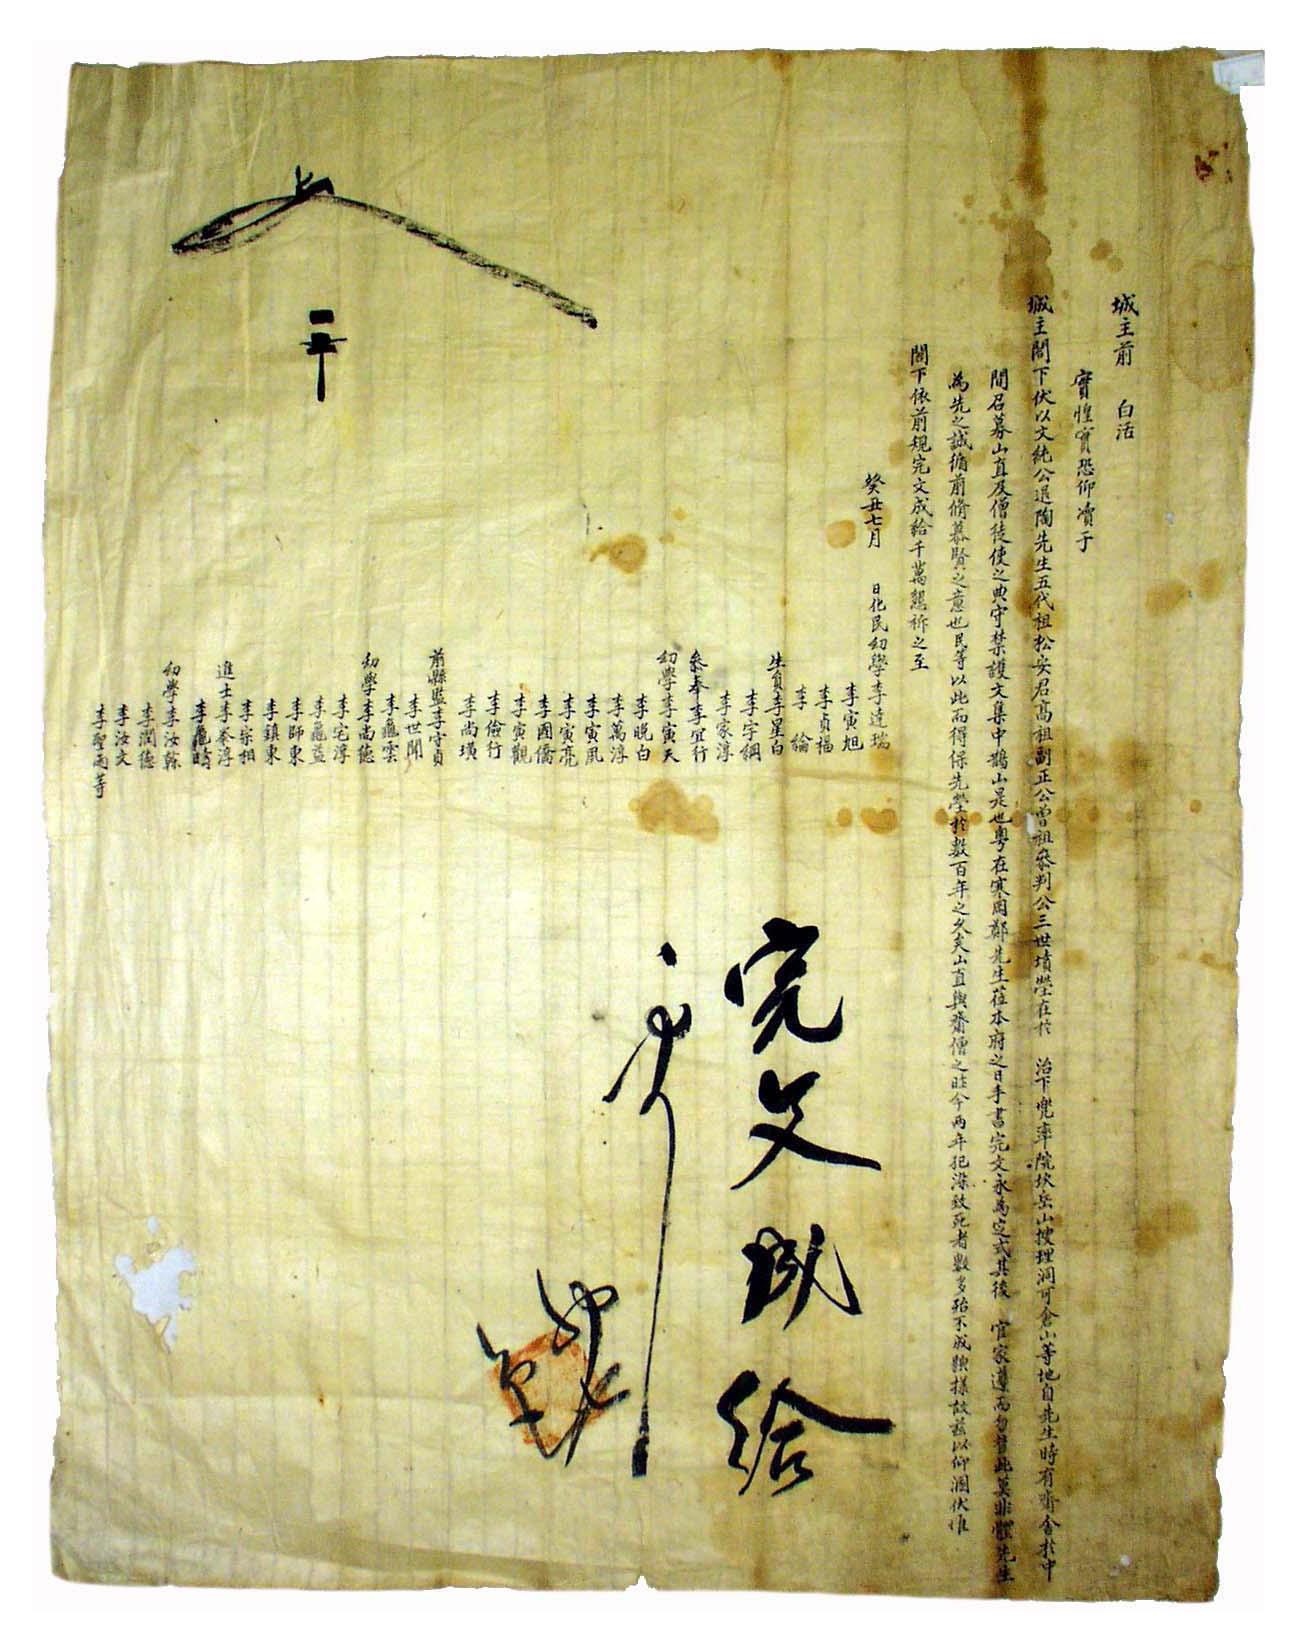 城主前 白活
實惶實恐仰瀆于
城主閤下伏以文純公退陶先生五代祖松安君高祖副正公曾祖參判公三世墳塋在於 治下兜率院坎岳山搜理洞可倉山等地自先生時有齋舍於中
間召募山直及僧徒使之典守禁護文集中鵲山是也粤在寒岡鄭先生莅本府之日手書完文永為定式其後 官家遵而勿替此莫非體先生
為先之誠循前脩慕賢之意也民等以此而得保先塋於數百年之久矣山直與齋僧之昨今兩年犯染致死者數多殆不成貌樣故玆以仰溷伏惟
閤下依前規完文成給千萬懇祈之至
癸丑七月 日化民幼學李達瑞
李寅旭
李貞福
李綸
生員李星白
李宇綱
李家淳
參奉李宜行
幼學李寅天
李晚白
李萬淳
李寅夙
李寅亮
李國僑
李寅觀
李儉行
李尚璜
前縣監李守貞
李世聞
李龜雲
幼學李尚德
李宅淳
李龜益
李師東
李鎭東
李宗相
進士李泰淳
李龜時
幼學李汝榦
李潤德
李汝文
李聖雨等
完文成給